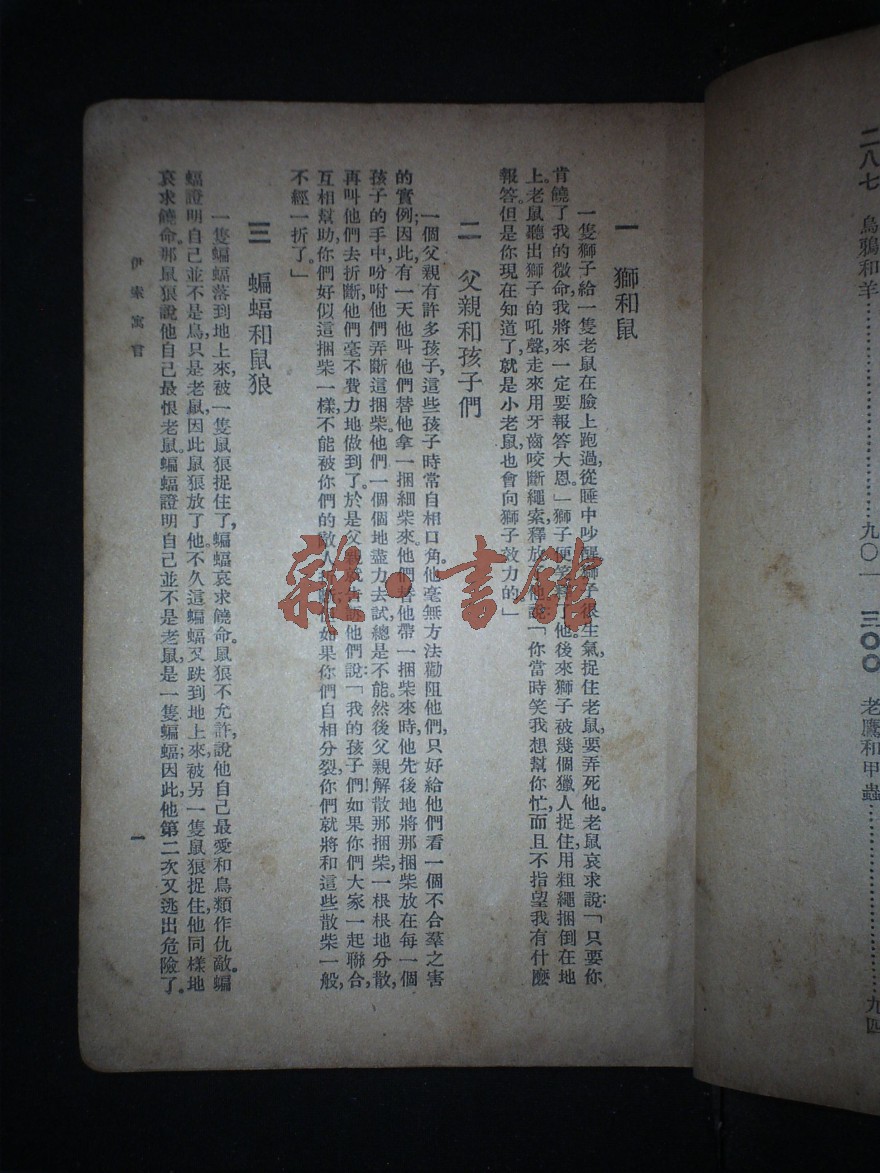 二八七　烏鴉和羊……………………九〇
一　三〇〇　老鷹和甲蟲……………………九四
一　獅和鼠
一隻獅子給一隻老鼠在臉上跑過，從睡中吵醒獅子很生氣，捉住老鼠，要弄死他。老鼠哀求說：「只要你
肯饒了我的微命，我將來一定要報答大恩。」獅子便笑他後來獅子被幾個獵人捉住，用粗繩捆倒在地
上。老鼠聽出獅子的吼聲，走來用牙齒咬斷繩索，釋放了他說：「你當時笑我想幫你忙，而且不指望我有什麼
報答。但是你現在知道了，就是小老鼠也會向獅子效力的。」
二　父親和孩子們
一個父親有許多孩子，這些孩子時常自相口角。他毫無方法勸阻他們，只好給他們看一個不合羣之害
的實例；因此，有一天他叫他們替他拿一捆細柴來。他們替他帶一捆柴來時，他先後地將那捆柴放在每一個
孩子的手中，吩咐他們弄斷這捆柴。他們一個個地盡力去試，總是不能。然後父親解散那捆柴，一根根地分散，
再叫他們去折斷，他們毫不費力地做到了。於是父親他們說：「我的孩子們！如果你們大家一起聯合，
互相幫助，你們好似這捆柴一樣，不能被你們的敵人如果你們自相分裂，你們就將和這些散柴一般，
不經一折了。」
三　蝙蝠和鼠狼
一隻蝙蝠落到地上來，被一隻鼠狼捉住了，蝙蝠哀求饒命。鼠狼不允許，說他自己最愛和鳥類作仇敵。蝙
蝠證明自己並不是鳥，只是老鼠，因此鼠狼放了他。不久這蝙蝠又跌到地上來，被另一隻鼠狼捉住，他同樣地
哀求饒命。那鼠狼說他自己最恨老鼠。蝙蝠證明自己並不是老鼠，是一隻蝙蝠；因此他第二次又逃出危險了。
伊索寓言
一
雜·書館